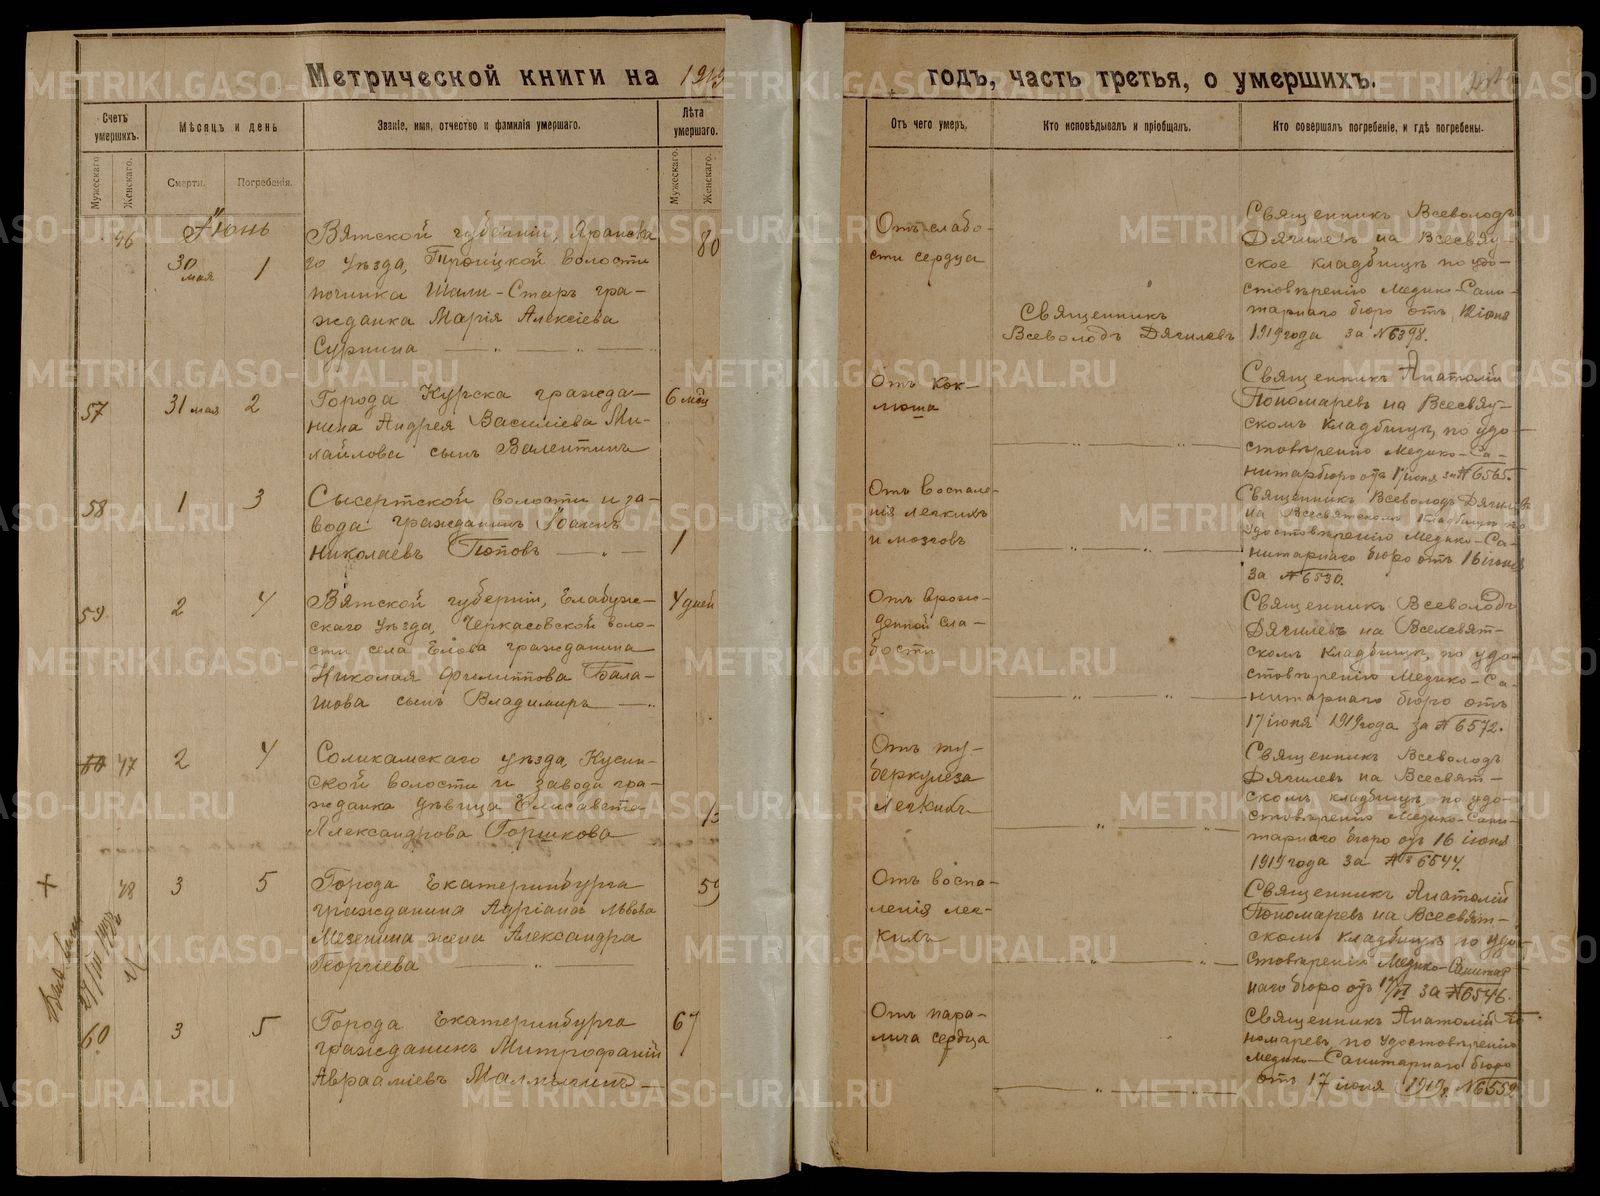 Метрической книги на 1919
годъ, часть третья, о умершихъ.
Счетъ умершихъ.
Мѣсяцъ и день
Званіе, имя, отчество и фамилія умершаго.
Лѣта умершаго.
Отъ чего умеръ.
Кто исповѣдывалъ и пріобщалъ.
Кто совершалъ погребеніе, и гдѣ погребены.
Мужескаго.
Женскаго.
Смерти.
Погребенія.
Мужескаго.
Женскаго.
46
Іюнь
30 мая
1
Вятской губерніи, Яранска
го уѣзда, Троицкой волости
починка Шали-Старъ гра-
жданка Марія Алексіева
Сурнина
80
Отъ слабо-
сти сердца
Священникъ
Всеволодъ Дягилевъ
Священникъ Всеволодъ
Дягилевъ на Всесвят-
ское кладбищѣ по удо-
стовѣренію Медико-Сани-
тарнаго бюро отъ 12 іюня
1919 года за №6398.
57
31 мая
2
Города Курска гражда-
нина Андрея Василіева Ми-
хайлова сынъ Валентинъ
6 мѣс
Отъ кок-
люша
Священникъ Анатолій
Пономаревъ на Всесвят-
скомъ кладбищѣ, по удо-
стовѣренію Медико-Са-
нитарбюро отъ іюня за №6565.
58
1
3
Сысертской волости и за-
вода гражданинъ Іоакимъ
Николаевъ Поповъ
1
Отъ воспале-
нія легкихъ
и мозговъ
Священникъ Всеволодъ Дягилевъ
на Всесвятскомъ кладбищѣ по
удостовѣренію Медико-Са-
нитарнаго бюро отъ 16 іюня
за №6530.
59
2
4
Вятской губерніи, Елабуж-
скаго уѣзда, Черкасовской воло-
сти села Елова гражданина
Николая Филиппова Бала-
шова сынъ Владимиръ
4 дней
Отъ врож-
денной сла-
бости
Священникъ Всеволодъ
Дягилевъ на Всехсвят-
скомъ кладбищѣ, по удо-
стовѣренію Медико-Са-
нитарнаго бюро отъ
17 іюня 1919 года за №6572.
47
2
4
Соликамскаго уѣзда, Кусин-
ской волости и завода гра-
жданка дѣвица Елисавета
Александрова Горшкова
Отъ ту-
беркулеза
легкихъ
Священникъ Всеволодъ
Дягилевъ на Всесвят-
скомъ кладбищѣ по удо-
стовѣренію Медико-Сани-
тарнаго бюро отъ 16 іюня
1919 года за №6544.
48
3
5
Города Екатеринбурга
гражданина Адріана Львова
Мезенина жена Александра
Георгіева
59
Отъ воспа-
ленія лег-
кихъ
Священникъ Анатолій
Пономаревъ на Всесвят-
скомъ кладбищѣ по удо-
стовѣренію Медико-Санитар
наго бюро отъ 17/VI за №6546.
60
3
5
Города Екатеринбурга
гражданинъ Митрофаній
Авраамиевъ Малмыгинъ
67
Отъ пара-
лича сердца
Священникъ Анатолій По
номаревъ, по удостовѣренію
Медико-Санитарнаго бюро
отъ 17 іюня 1919 г. №6559
METRIKI.GASO-URAL.RU